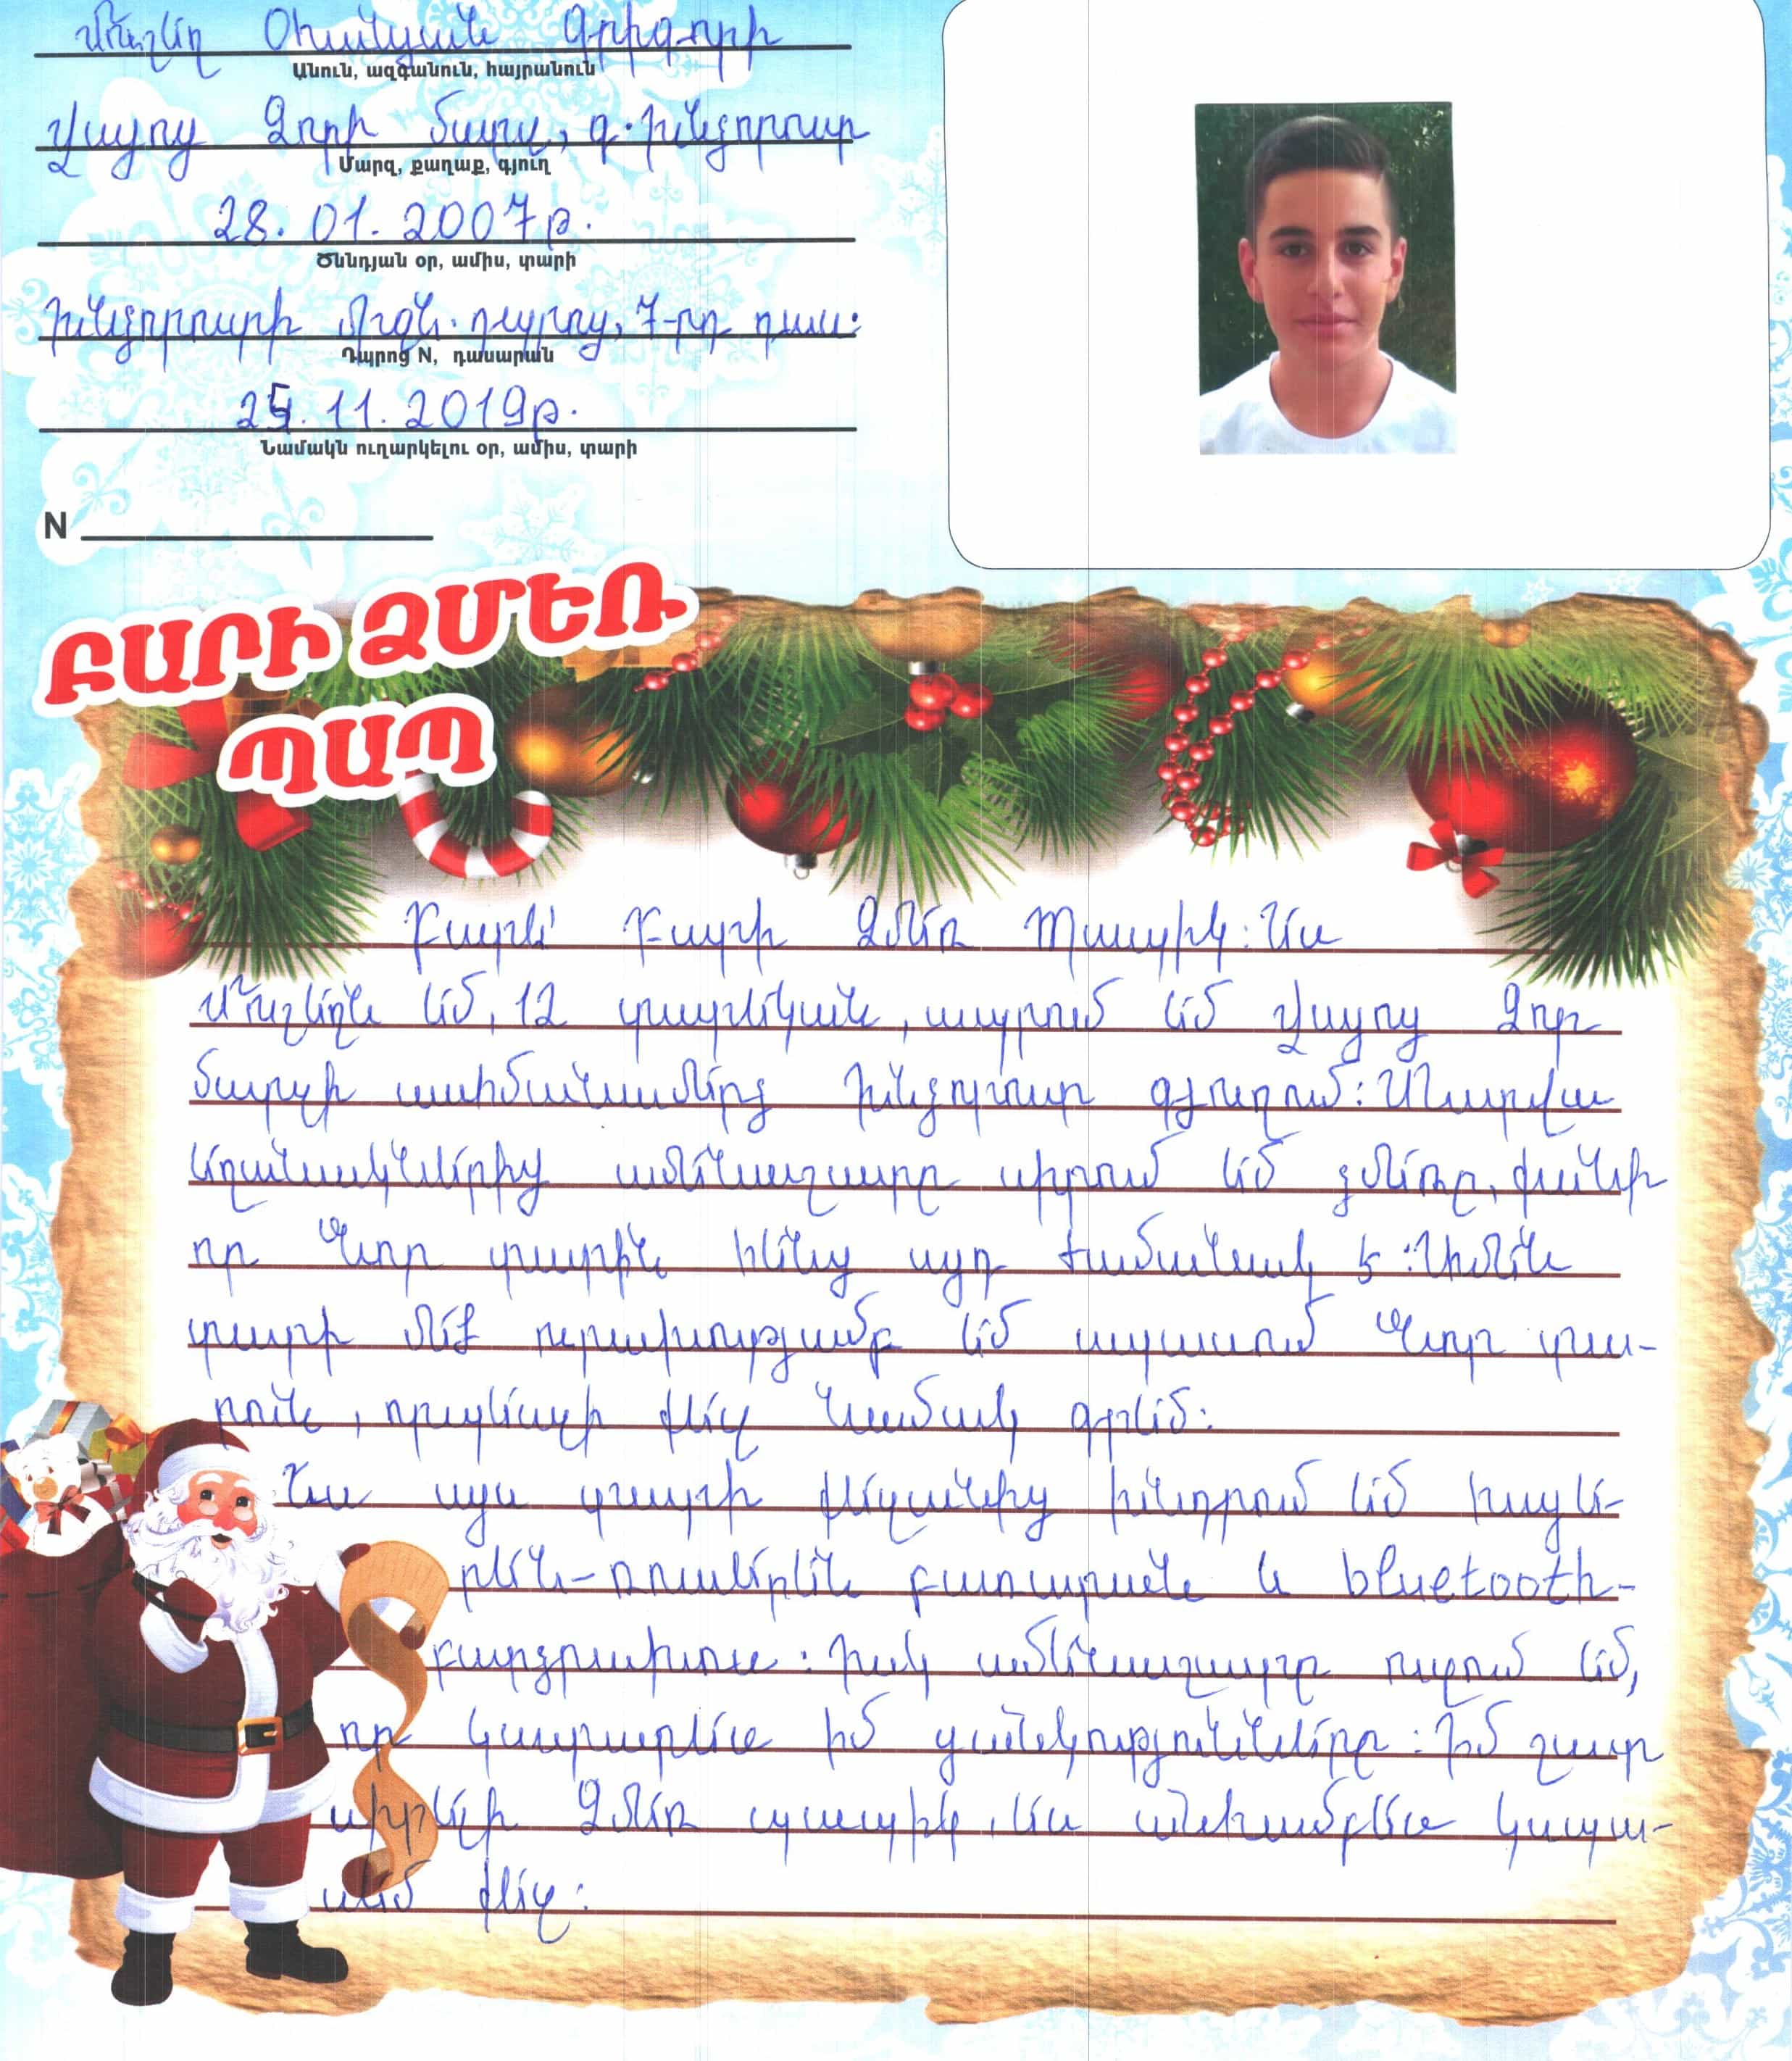 Մուշեղ Օհանյան Գրիգորի
Անուն, ազգանուն, հայրանուն
Վայոց Ձորի մարզ, գ. Խնձորուտ
Մարզ, քաղաք, գյուղ
28. 01. 2007թ.
Ծննդյան օր, ամիս, տարի
Խնձորուտի միջն. դպրոց, 7-րդ դաս.
Դպրոց N, դասարան
25. 11. 2019թ.
Նամակն ուղարկելու օր, ամիս, տարի
N
ԲԱՐԻ ՁՄԵՌ
ՊԱՊ
Բարև՛ Բարի Ձմեռ Պապիկ: Ես
Մուշեղն եմ, 12 տարեկան, ապրում եմ Վայոց Ձոր
մարզի սահմանամերձ Խնձորուտ գյուղում: Տարվա
եղանակներից ամենաշատը սիրում եմ ձմեռը, քանի
որ Նոր տարին հենց այդ ժամանակ է: Ամեն
տարի մեծ ուրախությամբ եմ սպասում Նոր տա-
րուն, որպեսզի քեզ նամակ գրեմ:
Ես այս տարի քեզանից խնդրում եմ հայե-
րեն-ռուսերեն բառարան և bluetooth-
բարձրախոս: Իսկ ամենաշատը ուզում եմ,
որ կատարես իմ ցանկությունները: Իմ շատ
սիրելի Ձմեռ պապիկ, ես անհամբեր կսպա-
սեմ քեզ: